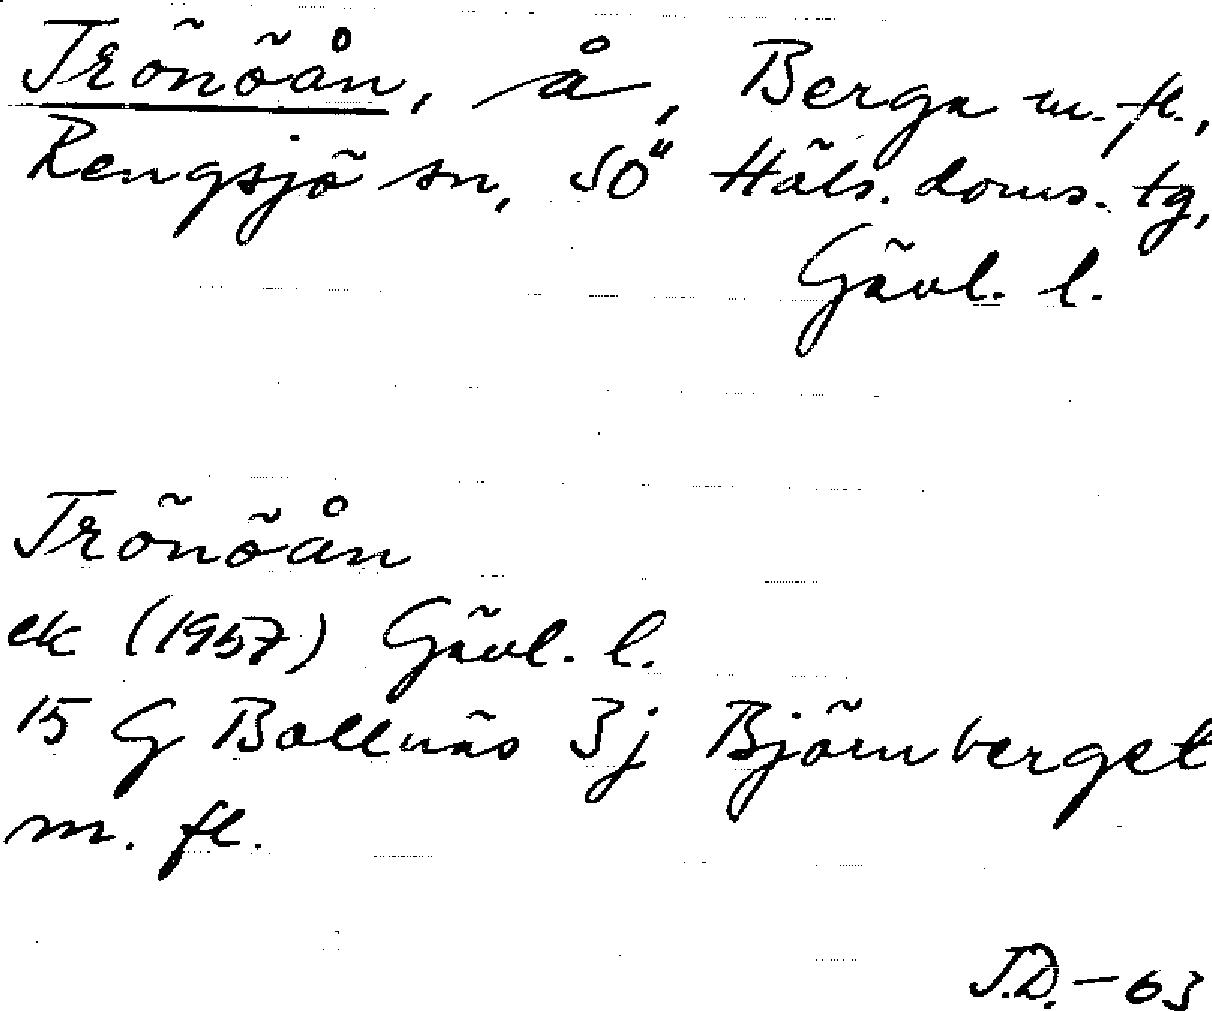 Trönöån, å, Berga m. fl.,
Rengsjö sn, SÖ Häls. doms. tg,
Gävl. l.
Trönöån
ek (1957) Gävl. l.
15 G Bollnäs 3j Björnberget
m. fl.
J.D. - 63